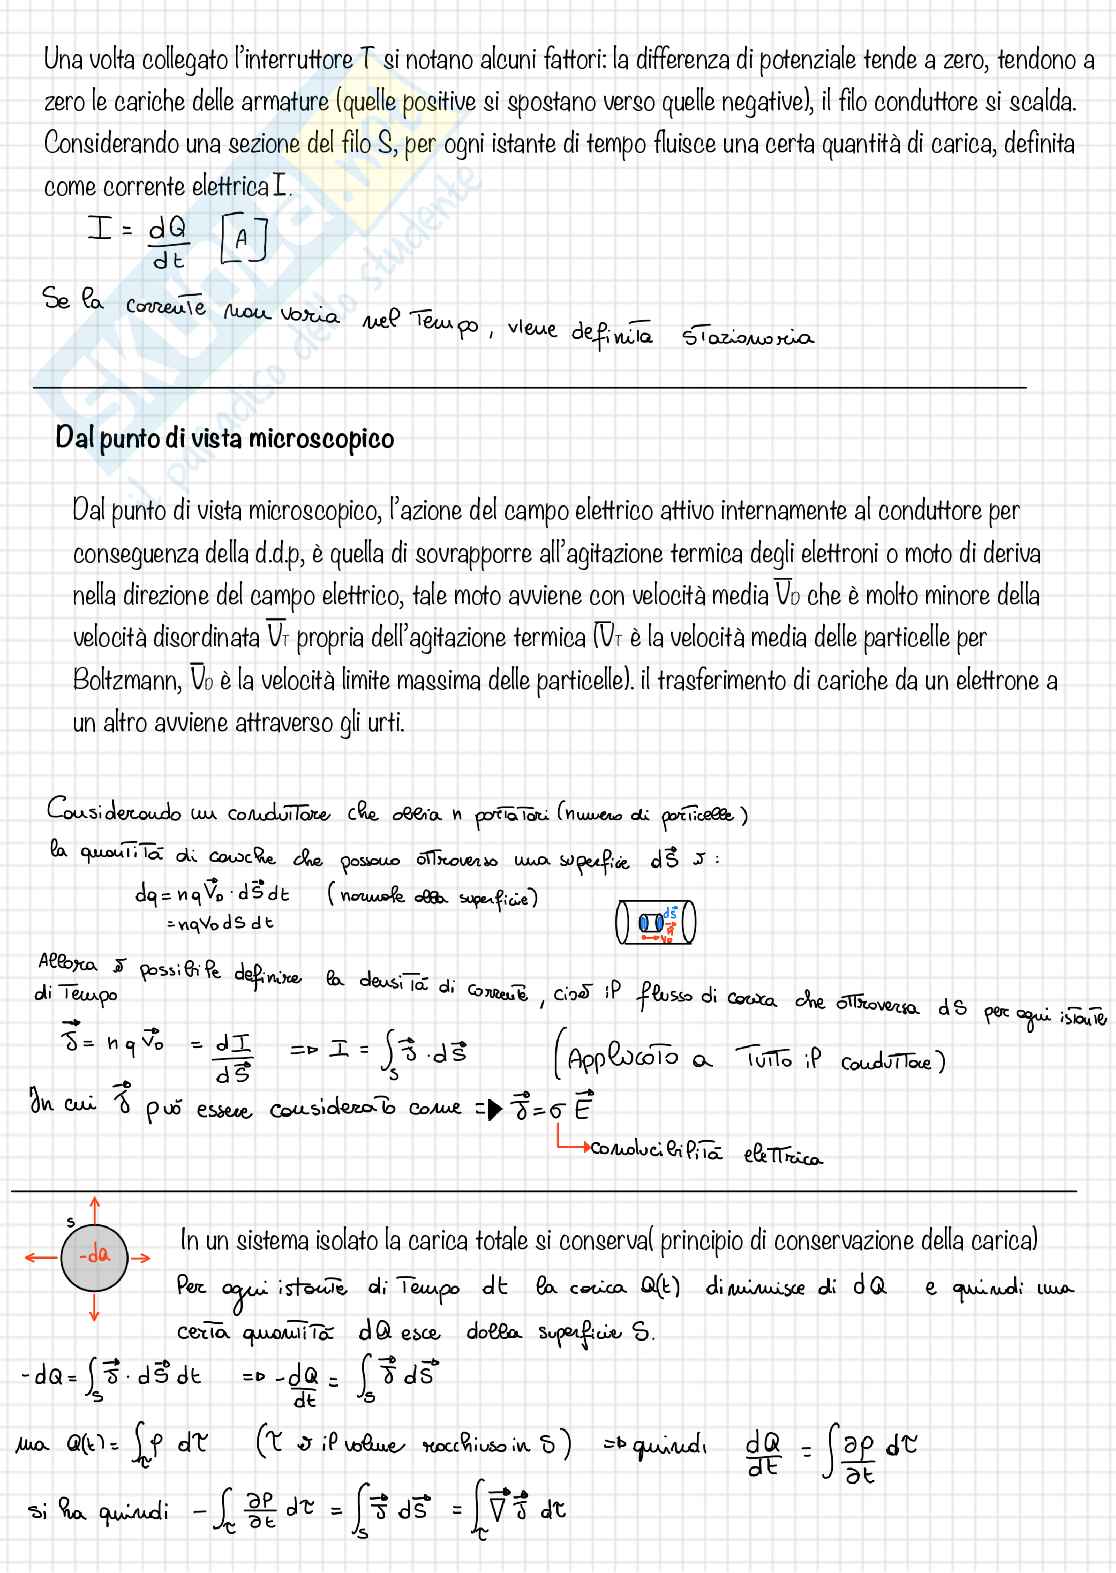 Una volta collegato l'interruttore T si notano alcuni fattori: la differenza di potenziale tende a zero, tendono a
zero le cariche delle armature (quelle positive si spostano verso quelle negative), il filo conduttore si scalda.
Considerando una sezione del filo S, per ogni istante di tempo fluisce una certa quantità di carica, definita
come corrente elettrica I.
I = dQ/dt [A]
Se la corrente non varia nel tempo, viene definita stazionaria
SKUOLA.net
il paradiso dello studente
Dal punto di vista microscopico
Dal punto di vista microscopico, l'azione del campo elettrico attivo internamente al conduttore per
conseguenza della d.d.p, è quella di sovrapporre all'agitazione termica degli elettroni o moto di deriva
nella direzione del campo elettrico, tale moto avviene con velocità media V̅D che è molto minore della
velocità disordinata V̅T propria dell'agitazione termica (V̅T è la velocità media delle particelle per
Boltzmann, V̅D è la velocità limite massima delle particelle). il trasferimento di cariche da un elettrone a
un altro avviene attraverso gli urti.
Considerando un conduttore che abbia n portatori (numero di particelle)
la quantità di cariche che passano attraverso una superfice dS⃗ è:
dq = nqV⃗D · dS⃗ dt (normale alla superficie)
= nqVD dS dt
dS⃗
n⃗
VD
Allora è possibile definire la densità di corrente, cioè il flusso di carica che attraversa dS per ogni istante
di tempo
J⃗ = nqV⃗D = dI/dS⃗ => I = ∫S J⃗ · dS⃗ (Applicato a tutto il conduttore)
In cui J⃗ può essere considerato come => J⃗ = σE⃗
conducibilità elettrica
S
-dQ
In un sistema isolato la carica totale si conserva( principio di conservazione della carica)
Per ogni istante di tempo dt la carica Q(t) diminuisce di dQ e quindi una
certa quantità dQ esce dalla superficie S.
-dQ = ∫S J⃗ · dS⃗ dt => -dQ/dt = ∫S J⃗ dS⃗
ma Q(t) = ∫τ ρ dτ (τ è il volume racchiuso in S) => quindi dQ/dt = ∫ ∂ρ/∂t dτ
si ha quindi - ∫τ ∂ρ/∂t dτ = ∫S J⃗ dS⃗ = ∫τ ∇⃗ J⃗ dτ